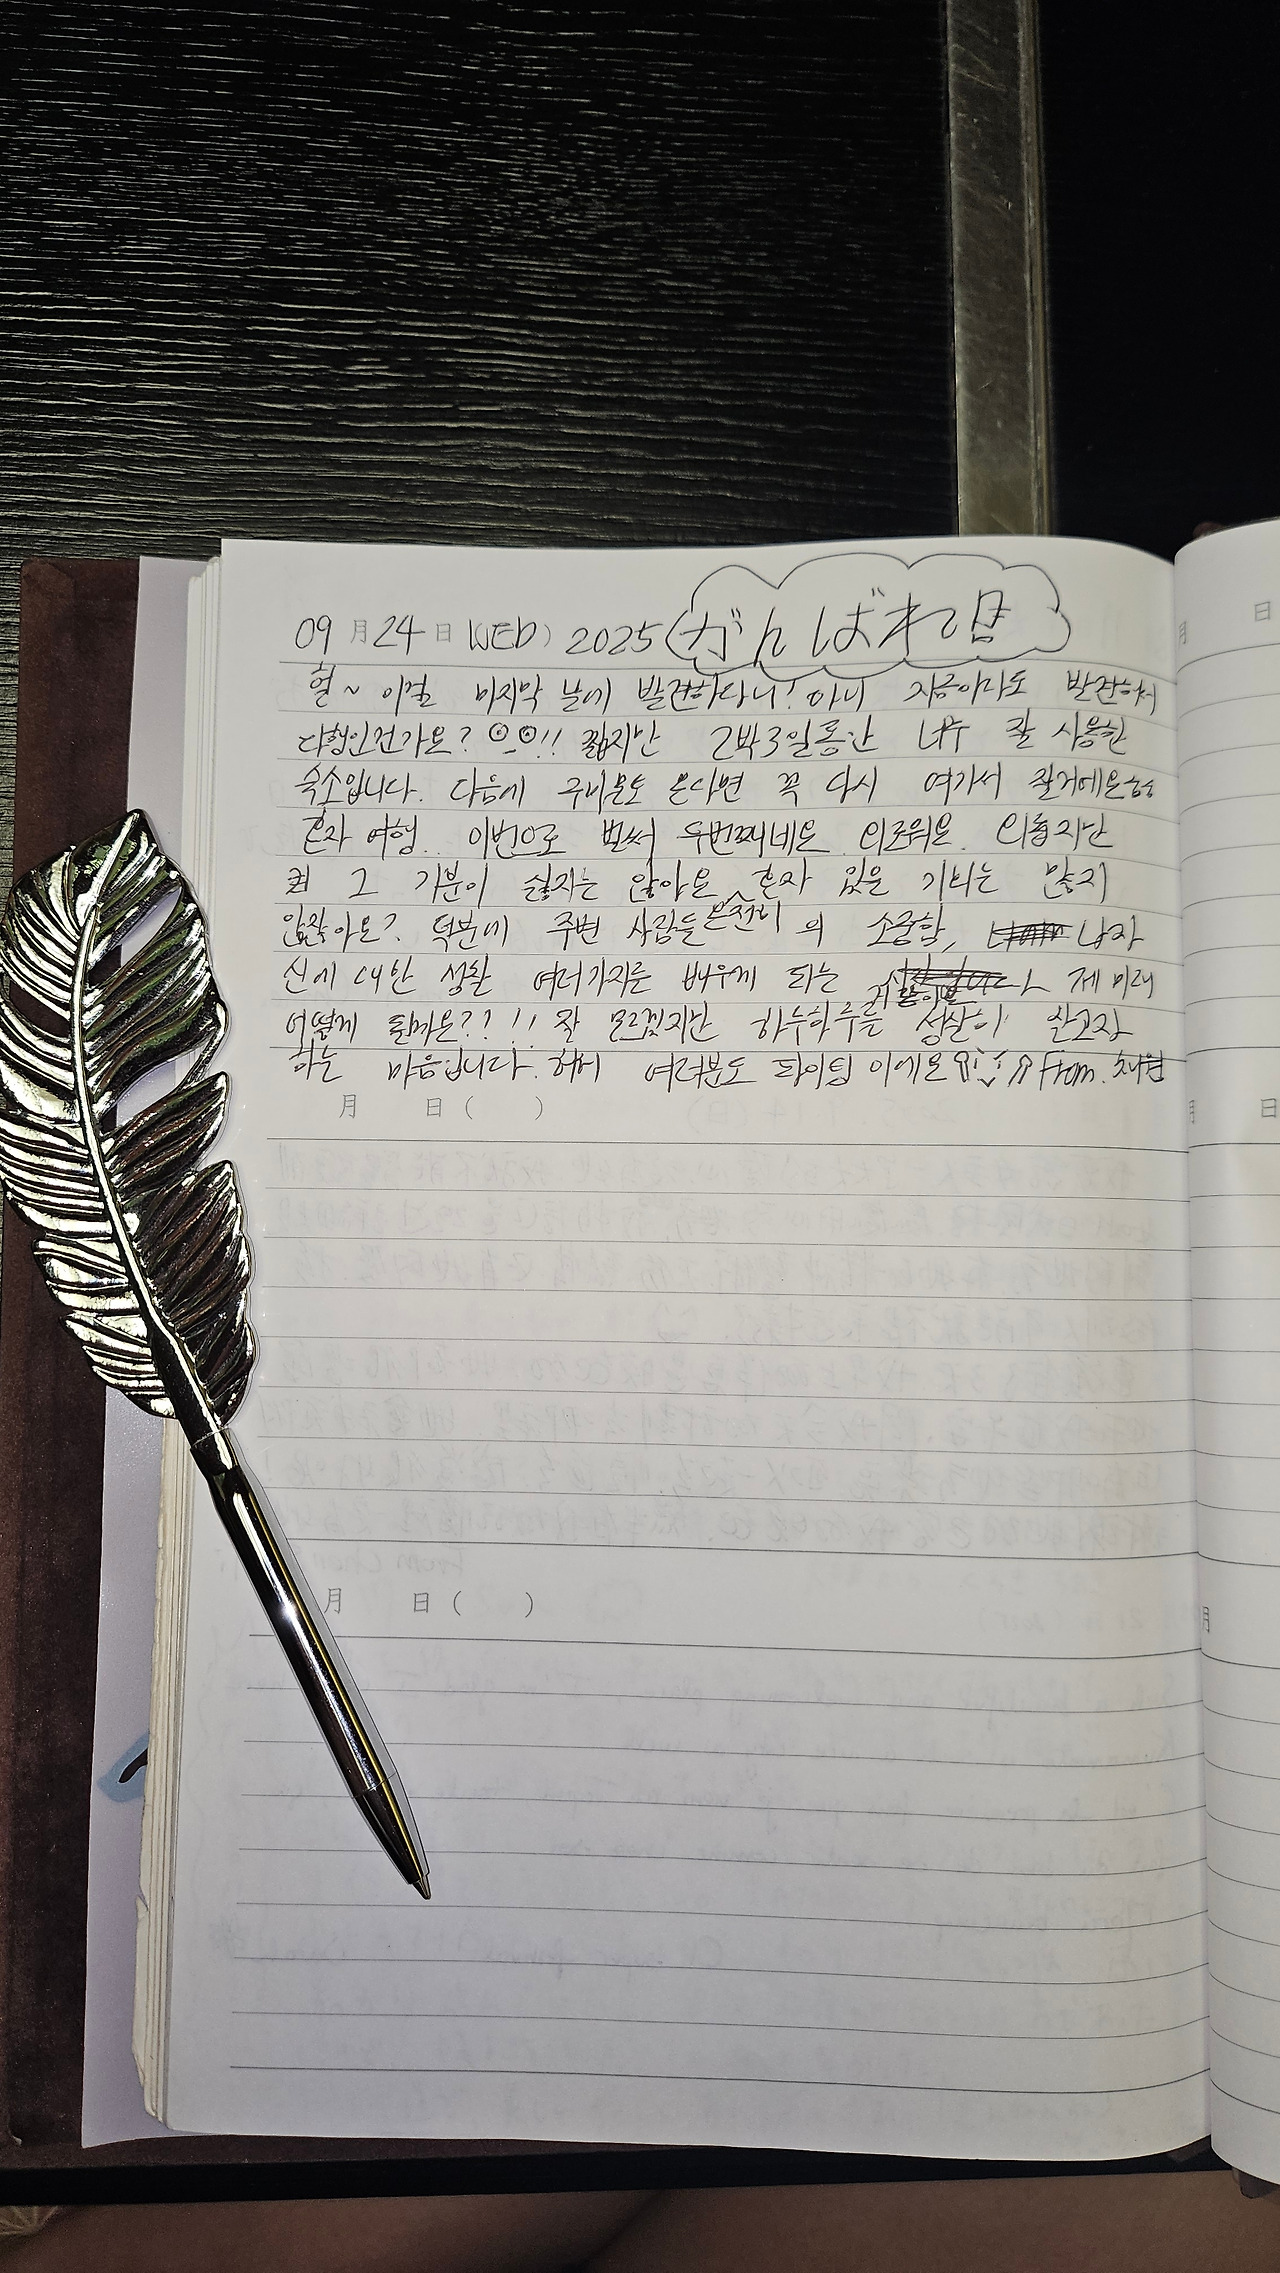 09 月 24 日 WED) 2025 がんばれ
헐~ 이걸 마지막 날에 발견하다니! 아니 지금이라도 발견해서
다행인건가요? !! 짧지만 2박3일동안 너무 잘 사용한
숙소입니다. 다음에 구마몬도 온다면 꼭 다시 여기서 잘거에요ㅎㅎ
혼자 여행.. 이번으로 벌써 두번째네요. 외로워요. 외롭지만
그 기분이 싫지는 않아요 혼자 있을 기회는 많지
않잖아요? 덕분에 주변 사람들 의 소중함, 나자
신에 대한 성찰 여러가지를 배우게 되는 제 미래
어떻게 될까요??!! 잘 모르겠지만 하루하루를 성실이 살고자
하는 마음입니다. 헤헤 여러분도 파이팅 이에요 From.
月 日 ( )
月 日 ( )